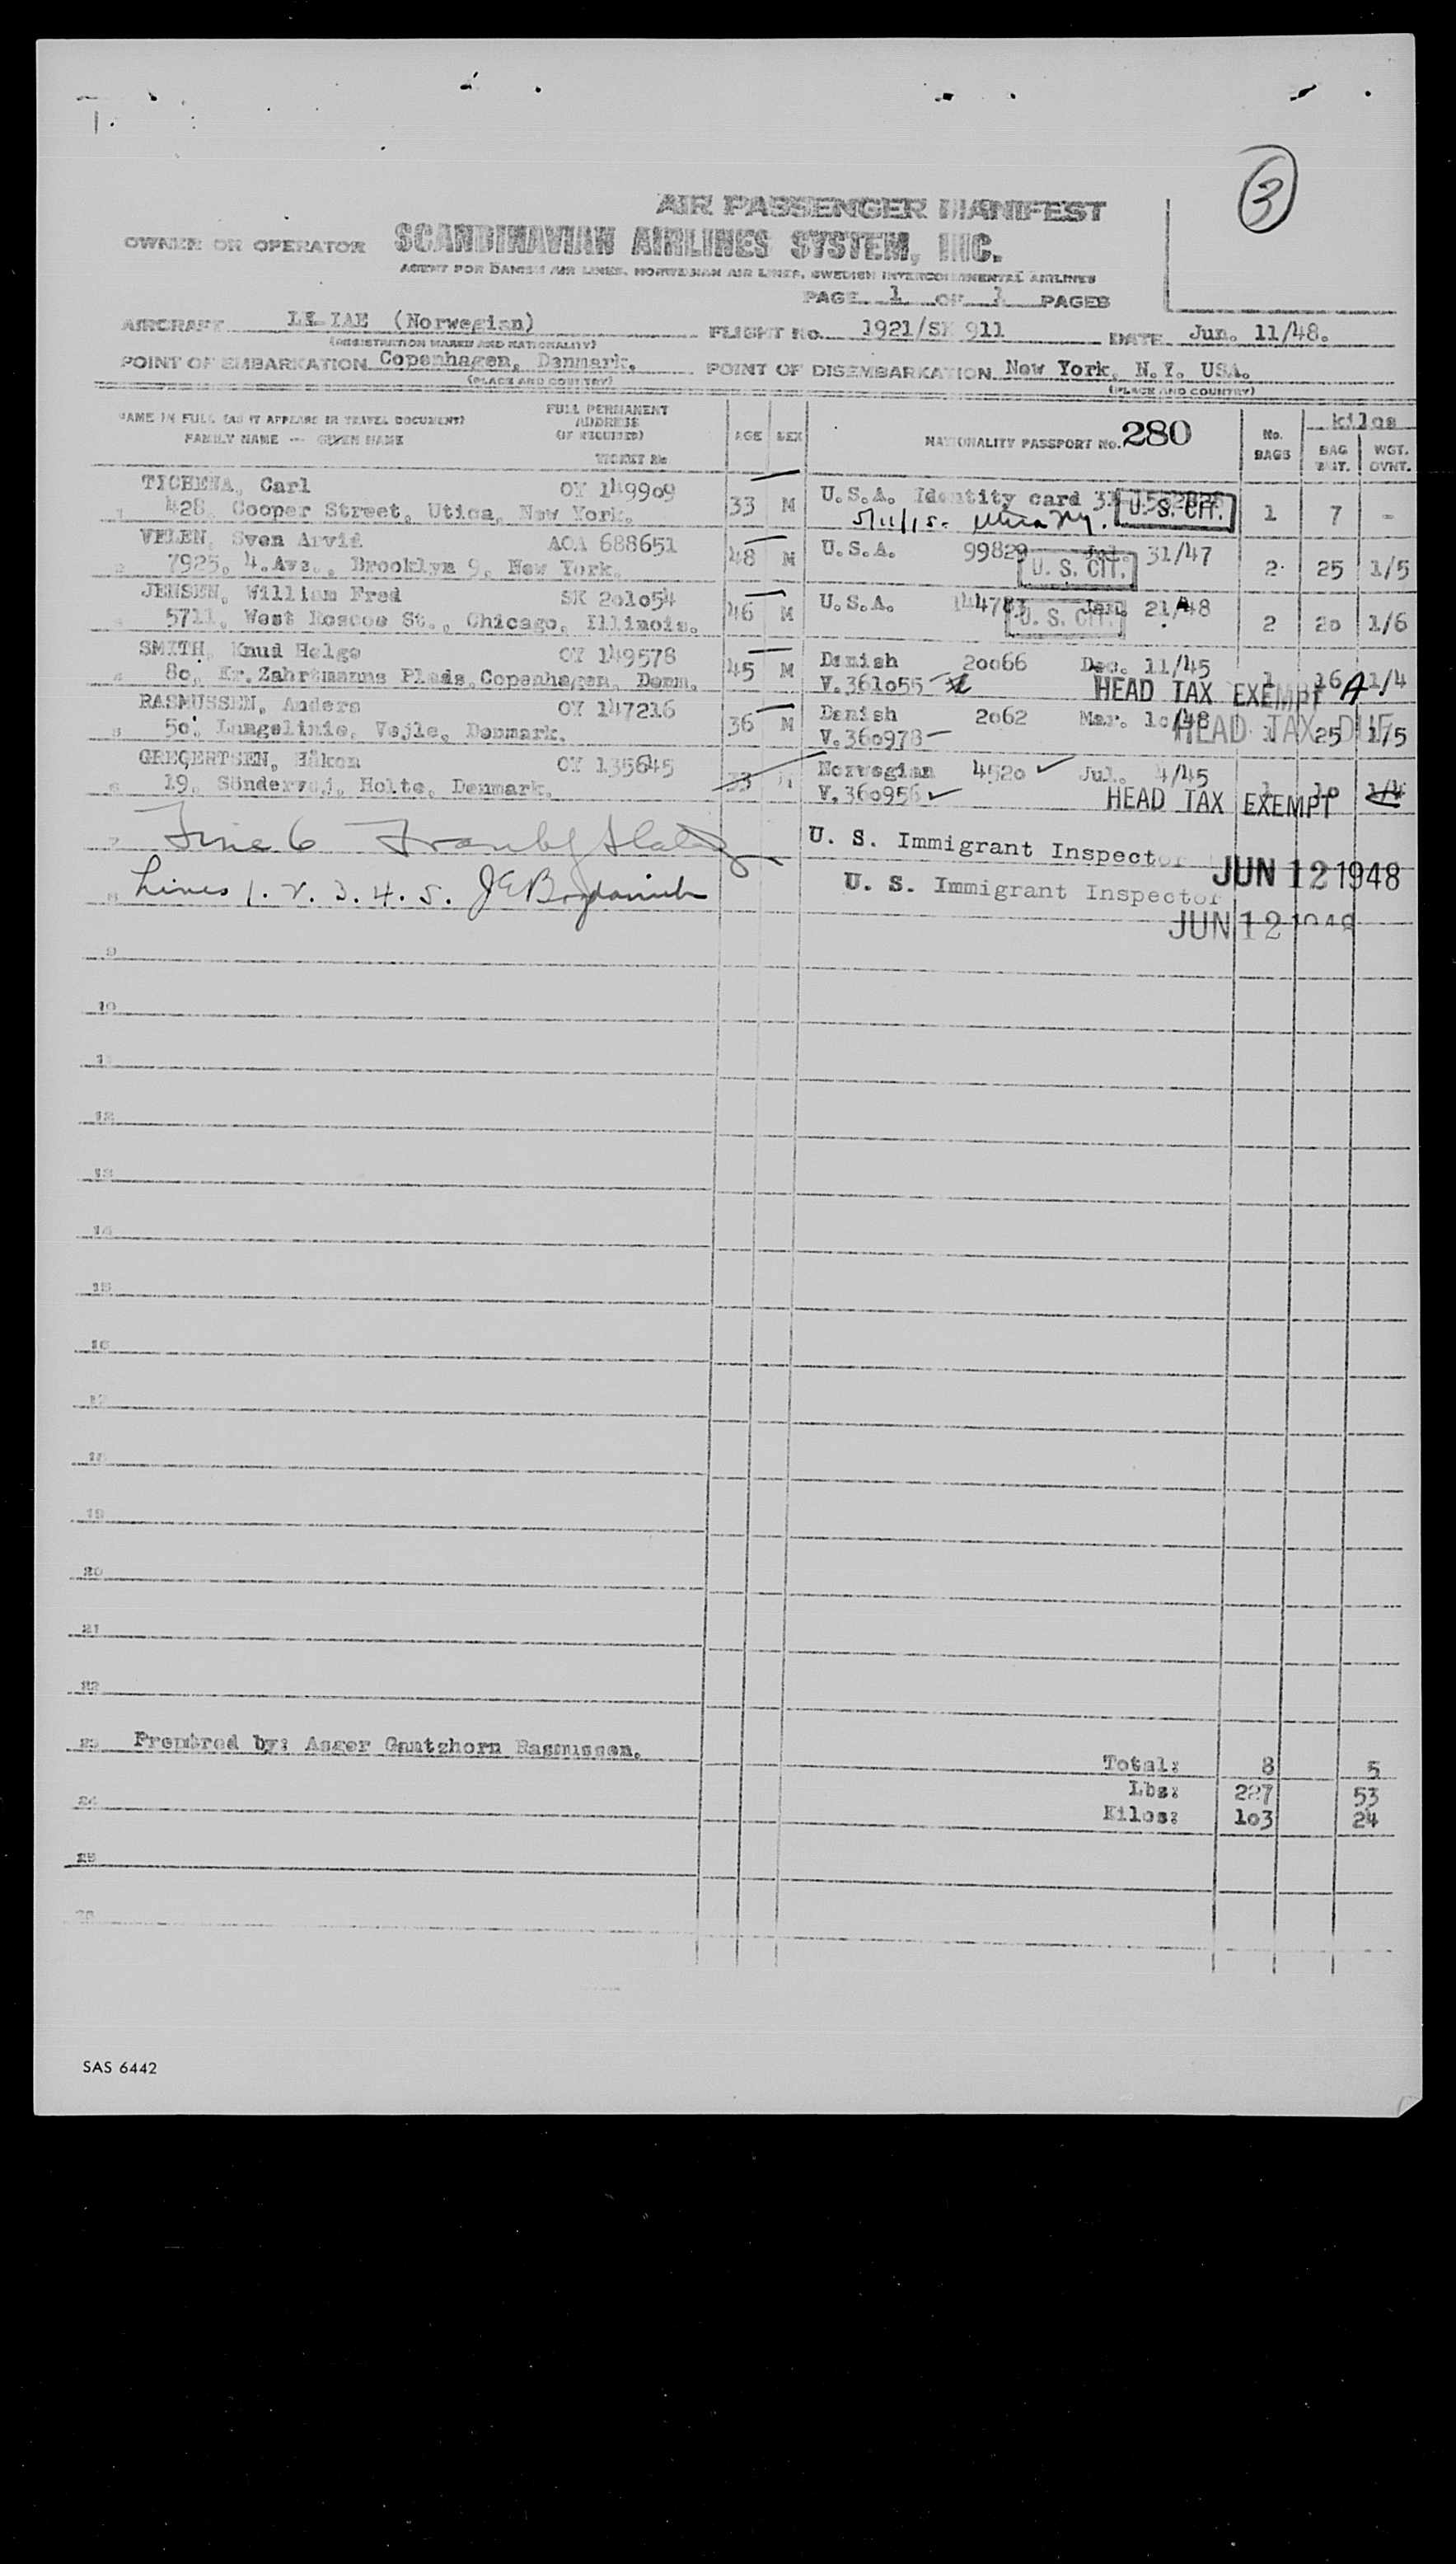 3
AIR PASSENGER MANIFEST
OWNER OR OPERATOR SCANDINAVIAN AIRLINES SYSTEM, INC.
AGENT FOR DANISH AIR LINES, NORWEGIAN AIR LINES, SWEDISH INTERCONTINENTAL AIRLINES
PAGE 1 OF 1 PAGES
AIRCRAFT (Norwegian) FLIGHT No. 1921/SK 911 DATE Jun. 11/48.
(REGISTRATION MARKS AND NATIONALITY)
POINT OF EMBARKATION Copenhagen, Denmark. POINT OF DISEMBARKATION New York, N.Y. USA.
(PLACE AND COUNTRY) (PLACE AND COUNTRY)
NAME IN FULL (AS IT APPEARS IN TRAVEL DOCUMENT) FULL PERMANENT ADDRESS (IF REQUIRED) AGE SEX NATIONALITY PASSPORT No. 280 No. BAGS kilos BAG WGT. WGT. OVNT.
FAMILY NAME -- GIVEN NAME TICKET No
TICHENA, Carl OY 149909 U.S.A. Identity card
1 428, Cooper Street, Utica, New York. 33 M 5/11/15. Utica Ny. U. S. CIT. 1 7 -
VELEN, Sven Arvid AOA 688651 U.S.A. 99829 Jul. 31/47
2 7925, 4.Ave., Brooklyn 9, New York. 48 M U. S. CIT. 2 25 1/5
JENSEN, William Fred SK 201054 U.S.A. Jan. 21/48
5711, West Roscoe St., Chicago, Illinois. 46 M U. S. CIT. 2 20 1/6
SMITH, Knud Helge OY 149578 Danish 20066 Dec. 11/45
80, Kr.Zahrtmanns Plads, Copenhagen, Denm. 45 M V.361055 HEAD TAX EXEMPT 1 16 1/4
RASMUSSEN, Anders OY 147216 Danish 2062 Mar. 10/48
50, Langelinie, Vejle, Denmark. 36 M V.360978 HEAD TAX DUE 1 25 1/5
GREGERTSEN, Håkon OY 135645 Norwegian 4520 Jul. 4/45
6 19, Söndervej, Holte, Denmark. 33 M V.360956 HEAD TAX EXEMPT 1 10 1/4
7 Line 6 U. S. Immigrant Inspector JUN 12 1948
8 Lines 1. 2. 3. 4. 5. U. S. Immigrant Inspector
JUN 12 1948
9
10
11
12
13
14
15
16
17
18
19
20
21
22
23 Prepared by: Asger Gantzhorn Rasmussen.
Total: 8 5
Lbs: 227 53
24 Kilos: 103 24
25
26
SAS 6442